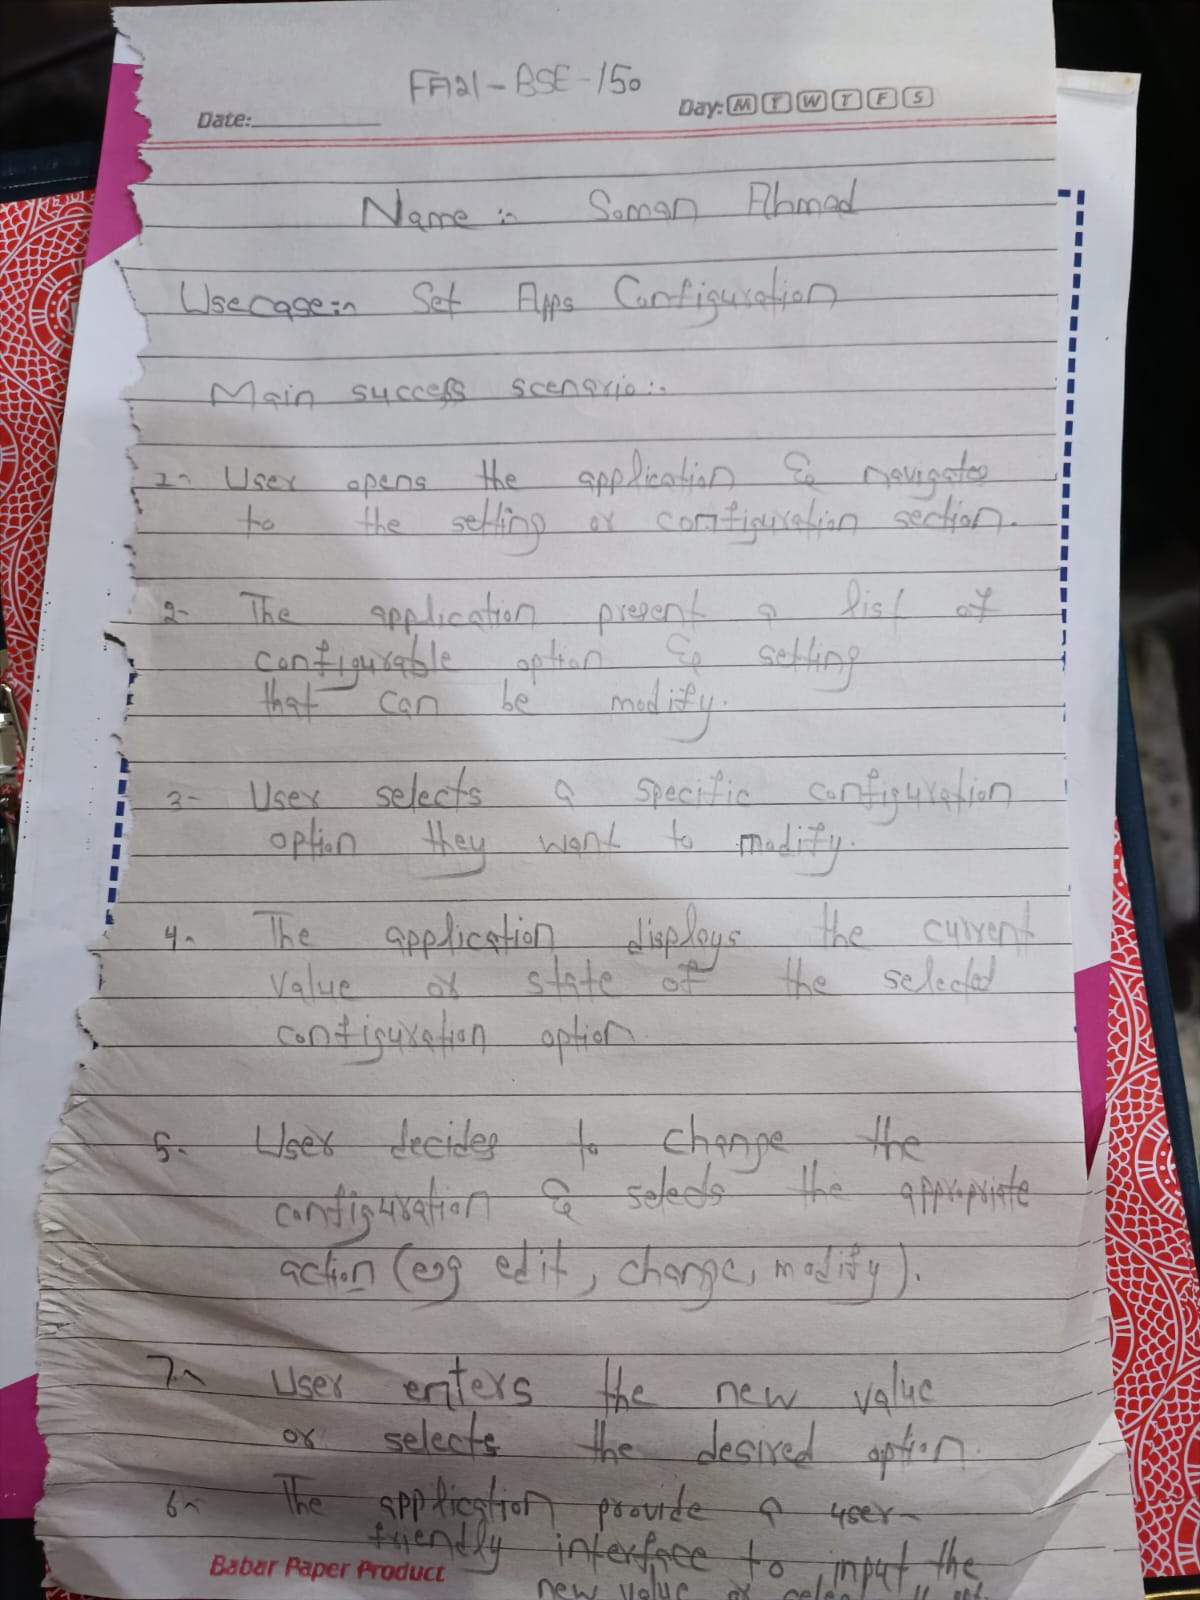 FA21-BSE-150
Date: Day: M T W T F S
Name :- Soman Ahmad
Usecase:- Set Apps Configuration
Main success scenario:-
1- User opens the application & navigates
to the setting or configuration section.
2- The application present a list of
configurable option & setting
that can be modify.
3- User selects a specific configuration
option they want to modify.
4- The application displays the current
value or state of the selected
configuration option.
5- User decides to change the
configuration & selects the appropriate
action (e.g edit, change, modify).
7- User enters the new value
or selects the desired option.
6- The application provide a user-
friendly interface to input the
new value or
Babar Paper Product